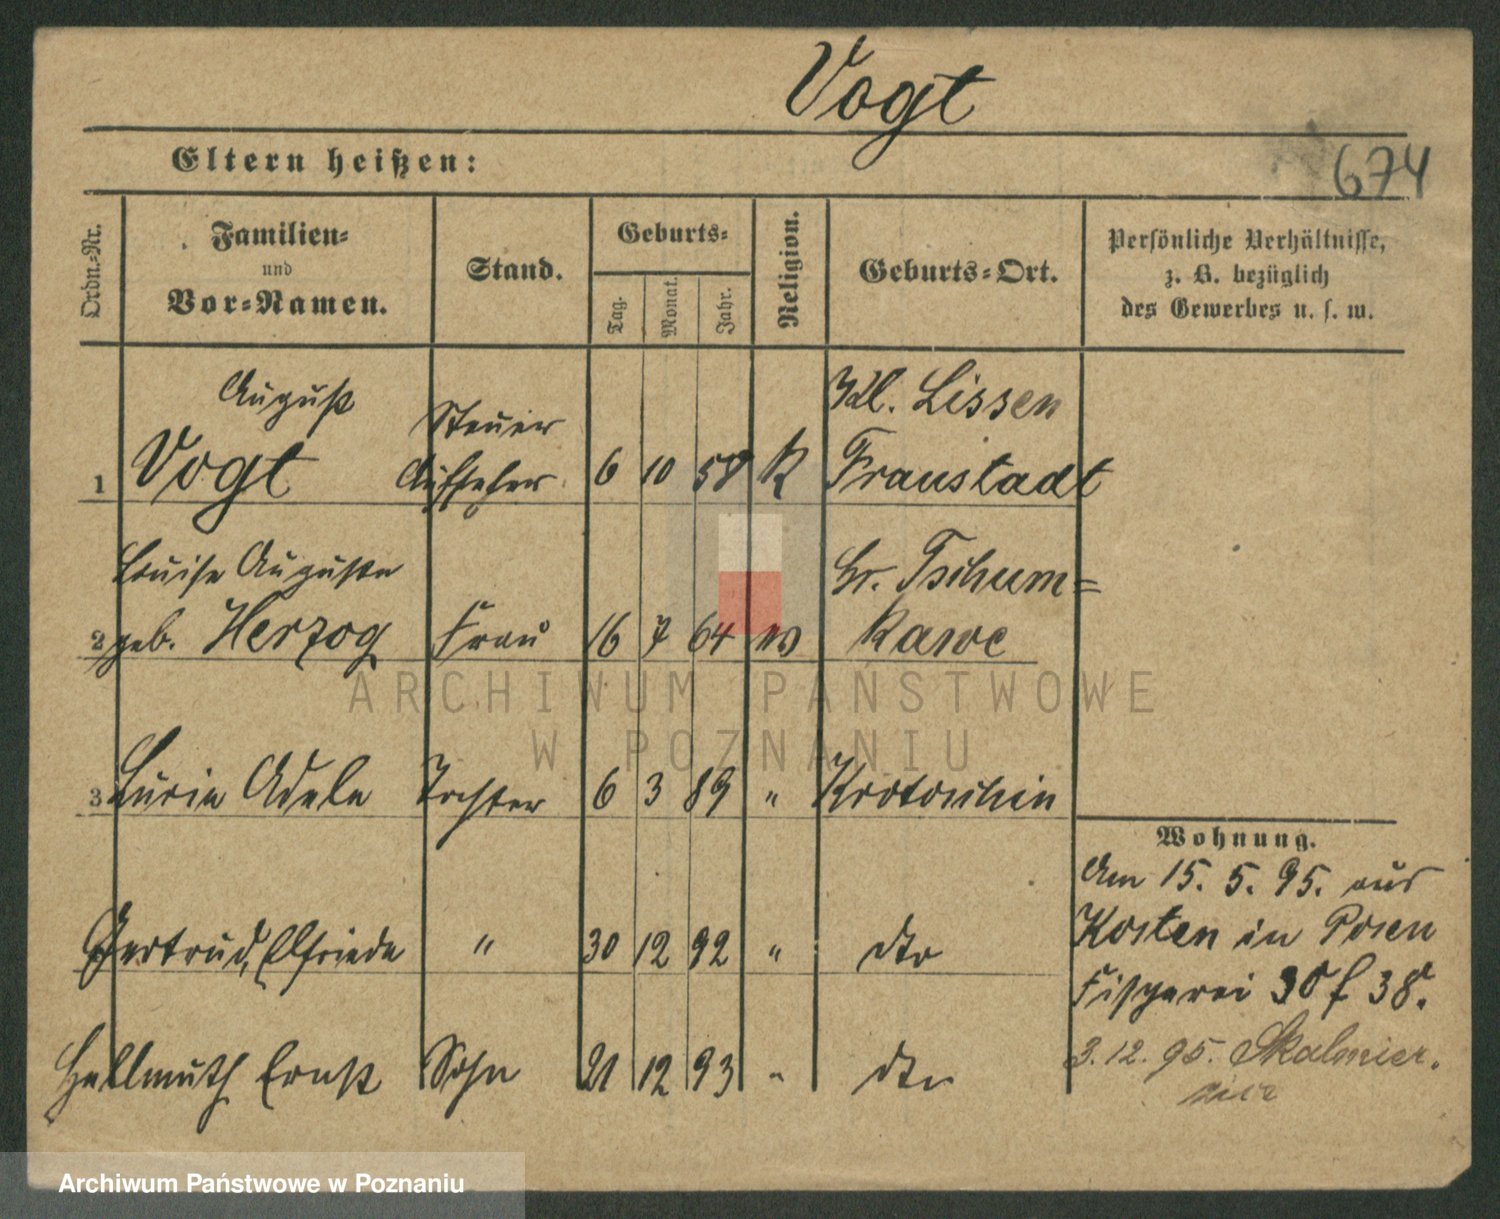 Vogt
Eltern heißen:
674
Ordn.-Nr.
Familien-
und
Vor-Namen.
Stand.
Geburts-
Tag.
Monat.
Jahr.
Religion.
Geburts-Ort.
Persönliche Verhältnisse,
z. B. bezüglich
des Gewerbes u. s. w.
August
Steuer
Kl. Lissen
1 Vogt Aufseher 6 10 58 K Fraustadt
Louise Auguste
Gr. Tschum=
2 geb. Herzog Frau 16 7 64 kawe
ARCHIWUM PAŃSTWOWE
W POZNANIU
3 Adele Tochter 6 3 89 " Krotoschin
Wohnung.
Am 15. 5. 95. aus
Gertrud, Elfriede " 30 12 92 " dto
Kosten in Posen
Fischerei 38.
Hellmuth Ernst Sohn 21 12 93 " dto
3. 12. 95. Skalmier.
Archiwum Państwowe w Poznaniu